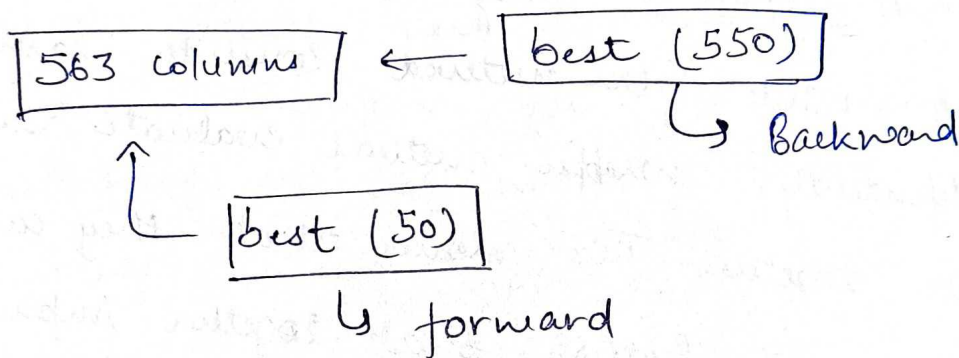 563 columns
best (550)
Backward
best (50)
forward